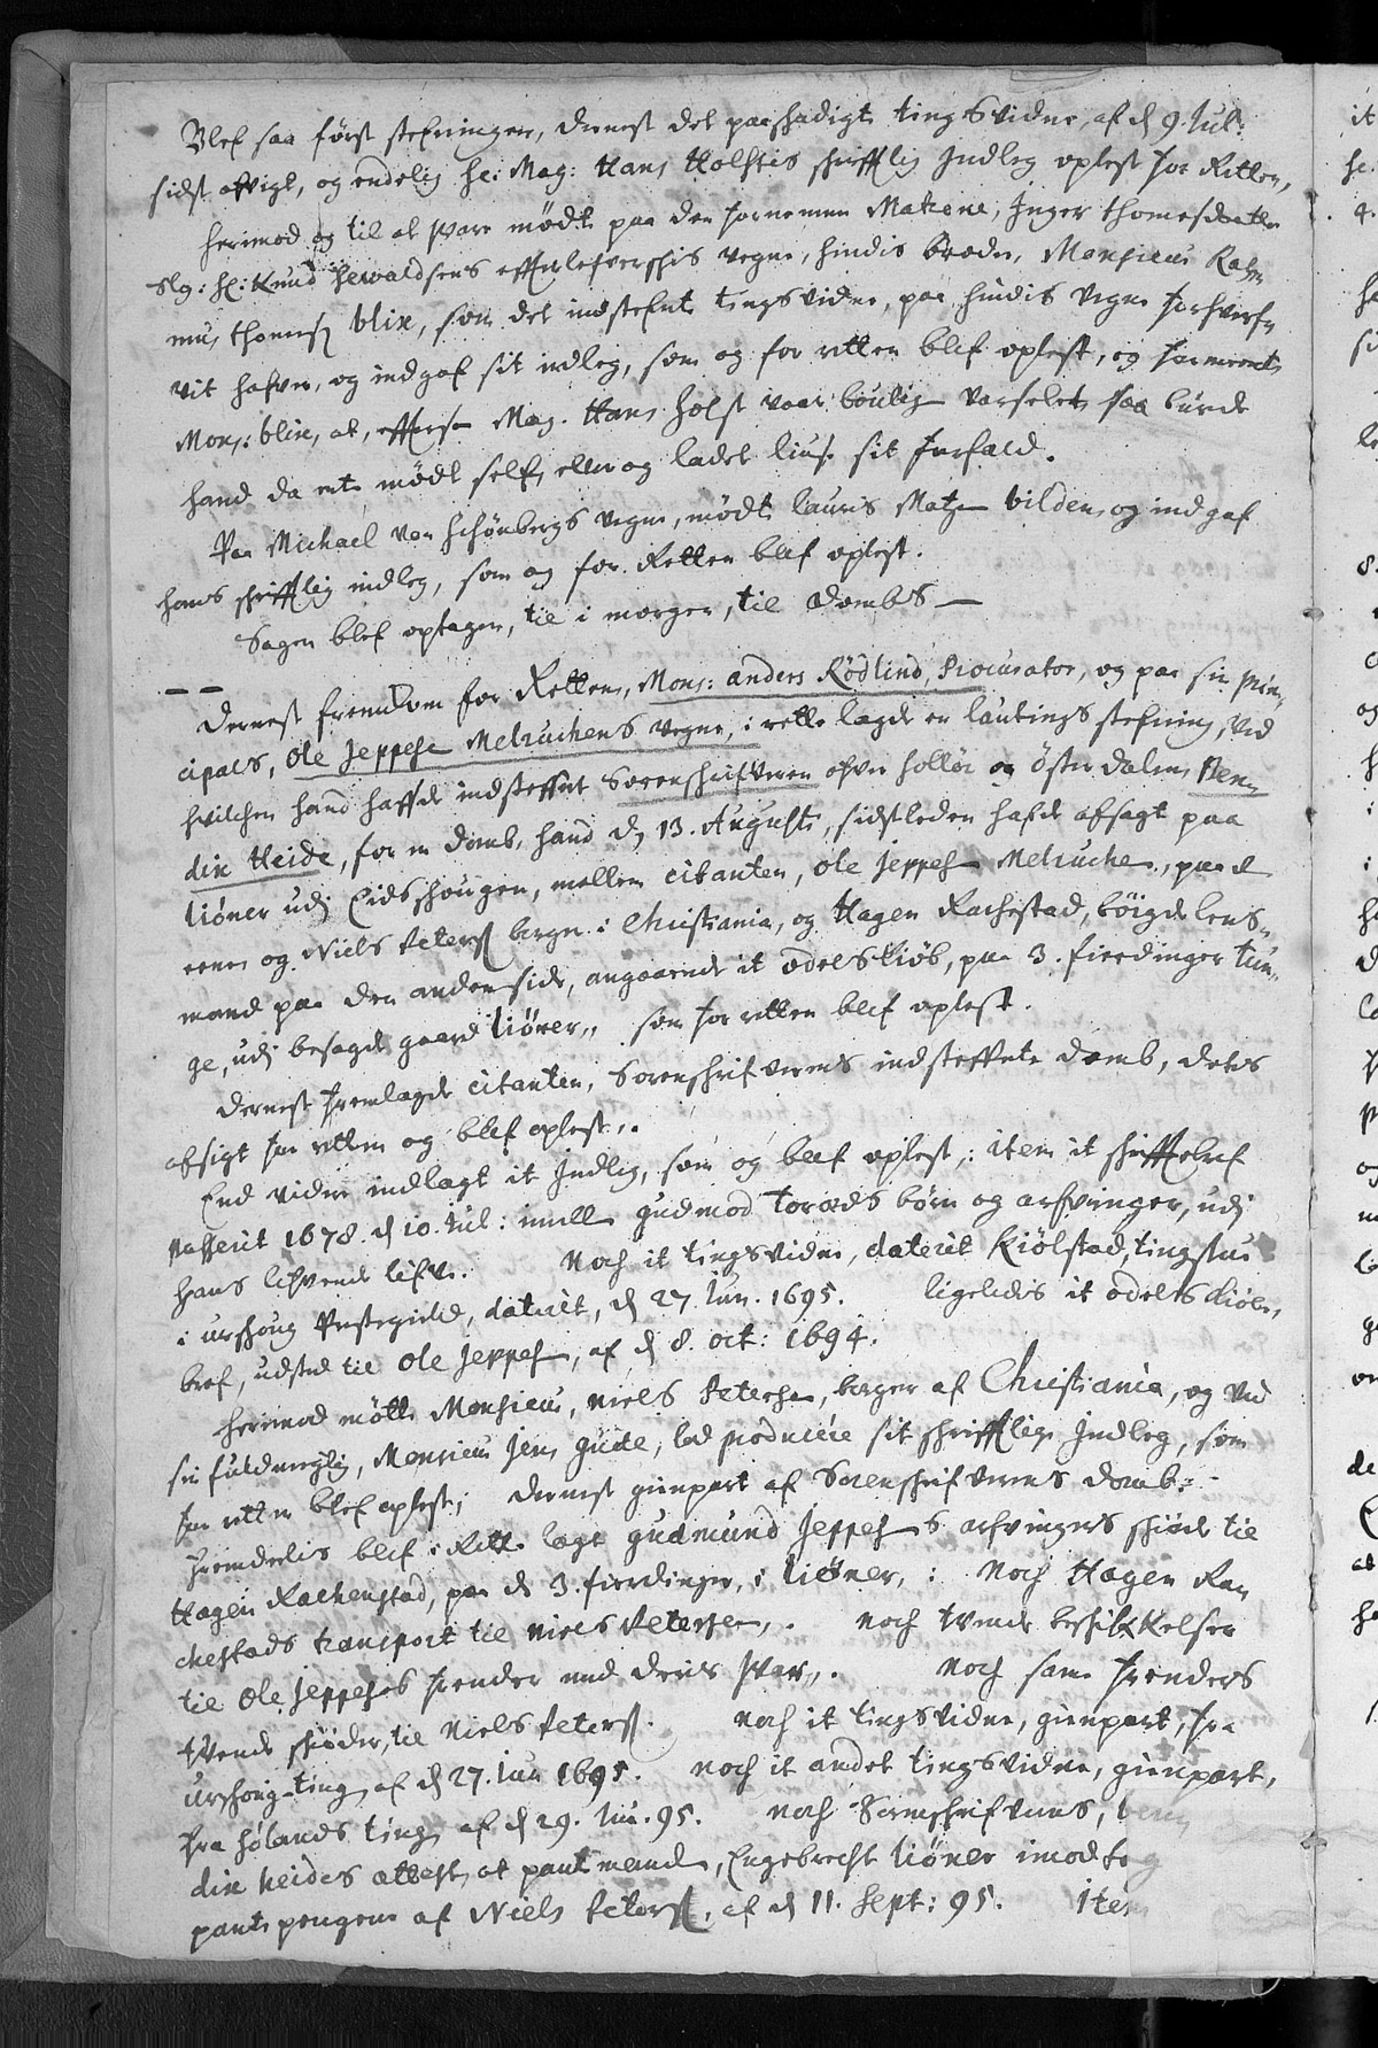 Blef saa först stefningen, dernest det paaskadigte tingsvidne, af d. 9 Jul:
sidst afvigt, og endelig hr: Mag: Hans Holstes skrifftlig Indleg oplest for Retten,
herimod og til at svare mödte paa den fornemme Matrone, Inger thomesdatter
Slg: hr: Knud Sewaldsens efterlefverskis vegne, hindis broder, Monsieur Ras-
mus thomesß blix, som det indstefnte tingsvidne, paa hindis vegne forhverf-
vit hafver, og indgaf sit indleg, som og for retten blef oplest, og formeente
Mons: blix, at, efftersom Mag. Hans Holst var louglig varselet, saa burde
hand da enten mödt self, eller og ladet liuse sit forfald.
Paa Michael von Schönbergs vegne, mödte laurs Matzen bilden, og indgaf
hans skrifftlig indleg, som og for Retten blef oplest.
Sagen blef optagen, til i morgen, til Dombs —
— —
Dernest fremkom for Retten, Mons: anders Rödlind, Procurator, og paa sin Prin-
cipals, Ole Jeppesen Melruchens vegne, i rette lagde en lautings stefning, ved
hvilchen hand haffde indsteffnt Sorenskrifveren ofver hollör og Österdalen, Ben-
dix Heide, for en domb, hand d. 13. Augusti, sidstleden hafde afsagt paa
Liöner udj Eidsskougen, mellem citanten, Ole Jeppesen Melruchen, paa d.
eene, og Niels Petersß borger i Christiania, og Hagen Rachestad, böigdelens-
mand paa den anden side, angaaende it odels kiöb, paa 3. fierdinger tun-
ge, udj besagde gaard Liöner,, som for retten blef oplest.
Dernest fremlagde citanten, Sorenskrifverens indsteffnte domb, dets
afsigt for retten og blef oplest,.
End videre indlagt it Indleg, som og blef oplest,: item it skifftebref
passerit 1678. d. 10. Jul: imellem gudmod Torards börn og arfvinger, udj
hans lefvende lifve. Noch it tingsvidne, daterit Kiölstad, tingstue
i urskoug Prestegield, daterit, d. 27. Jun. 1695. ligeledis it odels skiöde,
bref, udsted til Ole Jeppesen, af d. 8. oct: 1694.
herimod mötte Monsieur, Niels Petersen, borger af Christiania, og ved
sin fuldmegtig, Monsieur Jens gude, lod producere sit skrifftlige Indleg, som
for retten blef oplest; dernest gienpart af Sorenskrifverens domb:
Fremdelis blef i Rette lagt gudmund Jeppesens arfvingers skiöde til
Hagen Rachenstad, paa d. 3. fierdinger, i Liöner,: Noch Hagen Ra-
chestads transport til Niels Petersen,. noch tvende beskikkelser
til Ole Jeppesens frender med deris svar,,. Noch samme frenders
tvende skiöder, til Niels Petersß. Noch it tingsvidne, gienpart, fra
urskoug-ting, af d. 27. Jun 1695. Noch it andet tingsvidne, gienpart,
fra hölands ting af d. 29. Jun. 95. Noch Sorenskrifverens, Ben-
dix heides attest, at pantemanden, Engebrecht Liöner imodtog
pante pengene af Niels Petersß, af d. 11. Sept: 95. Item